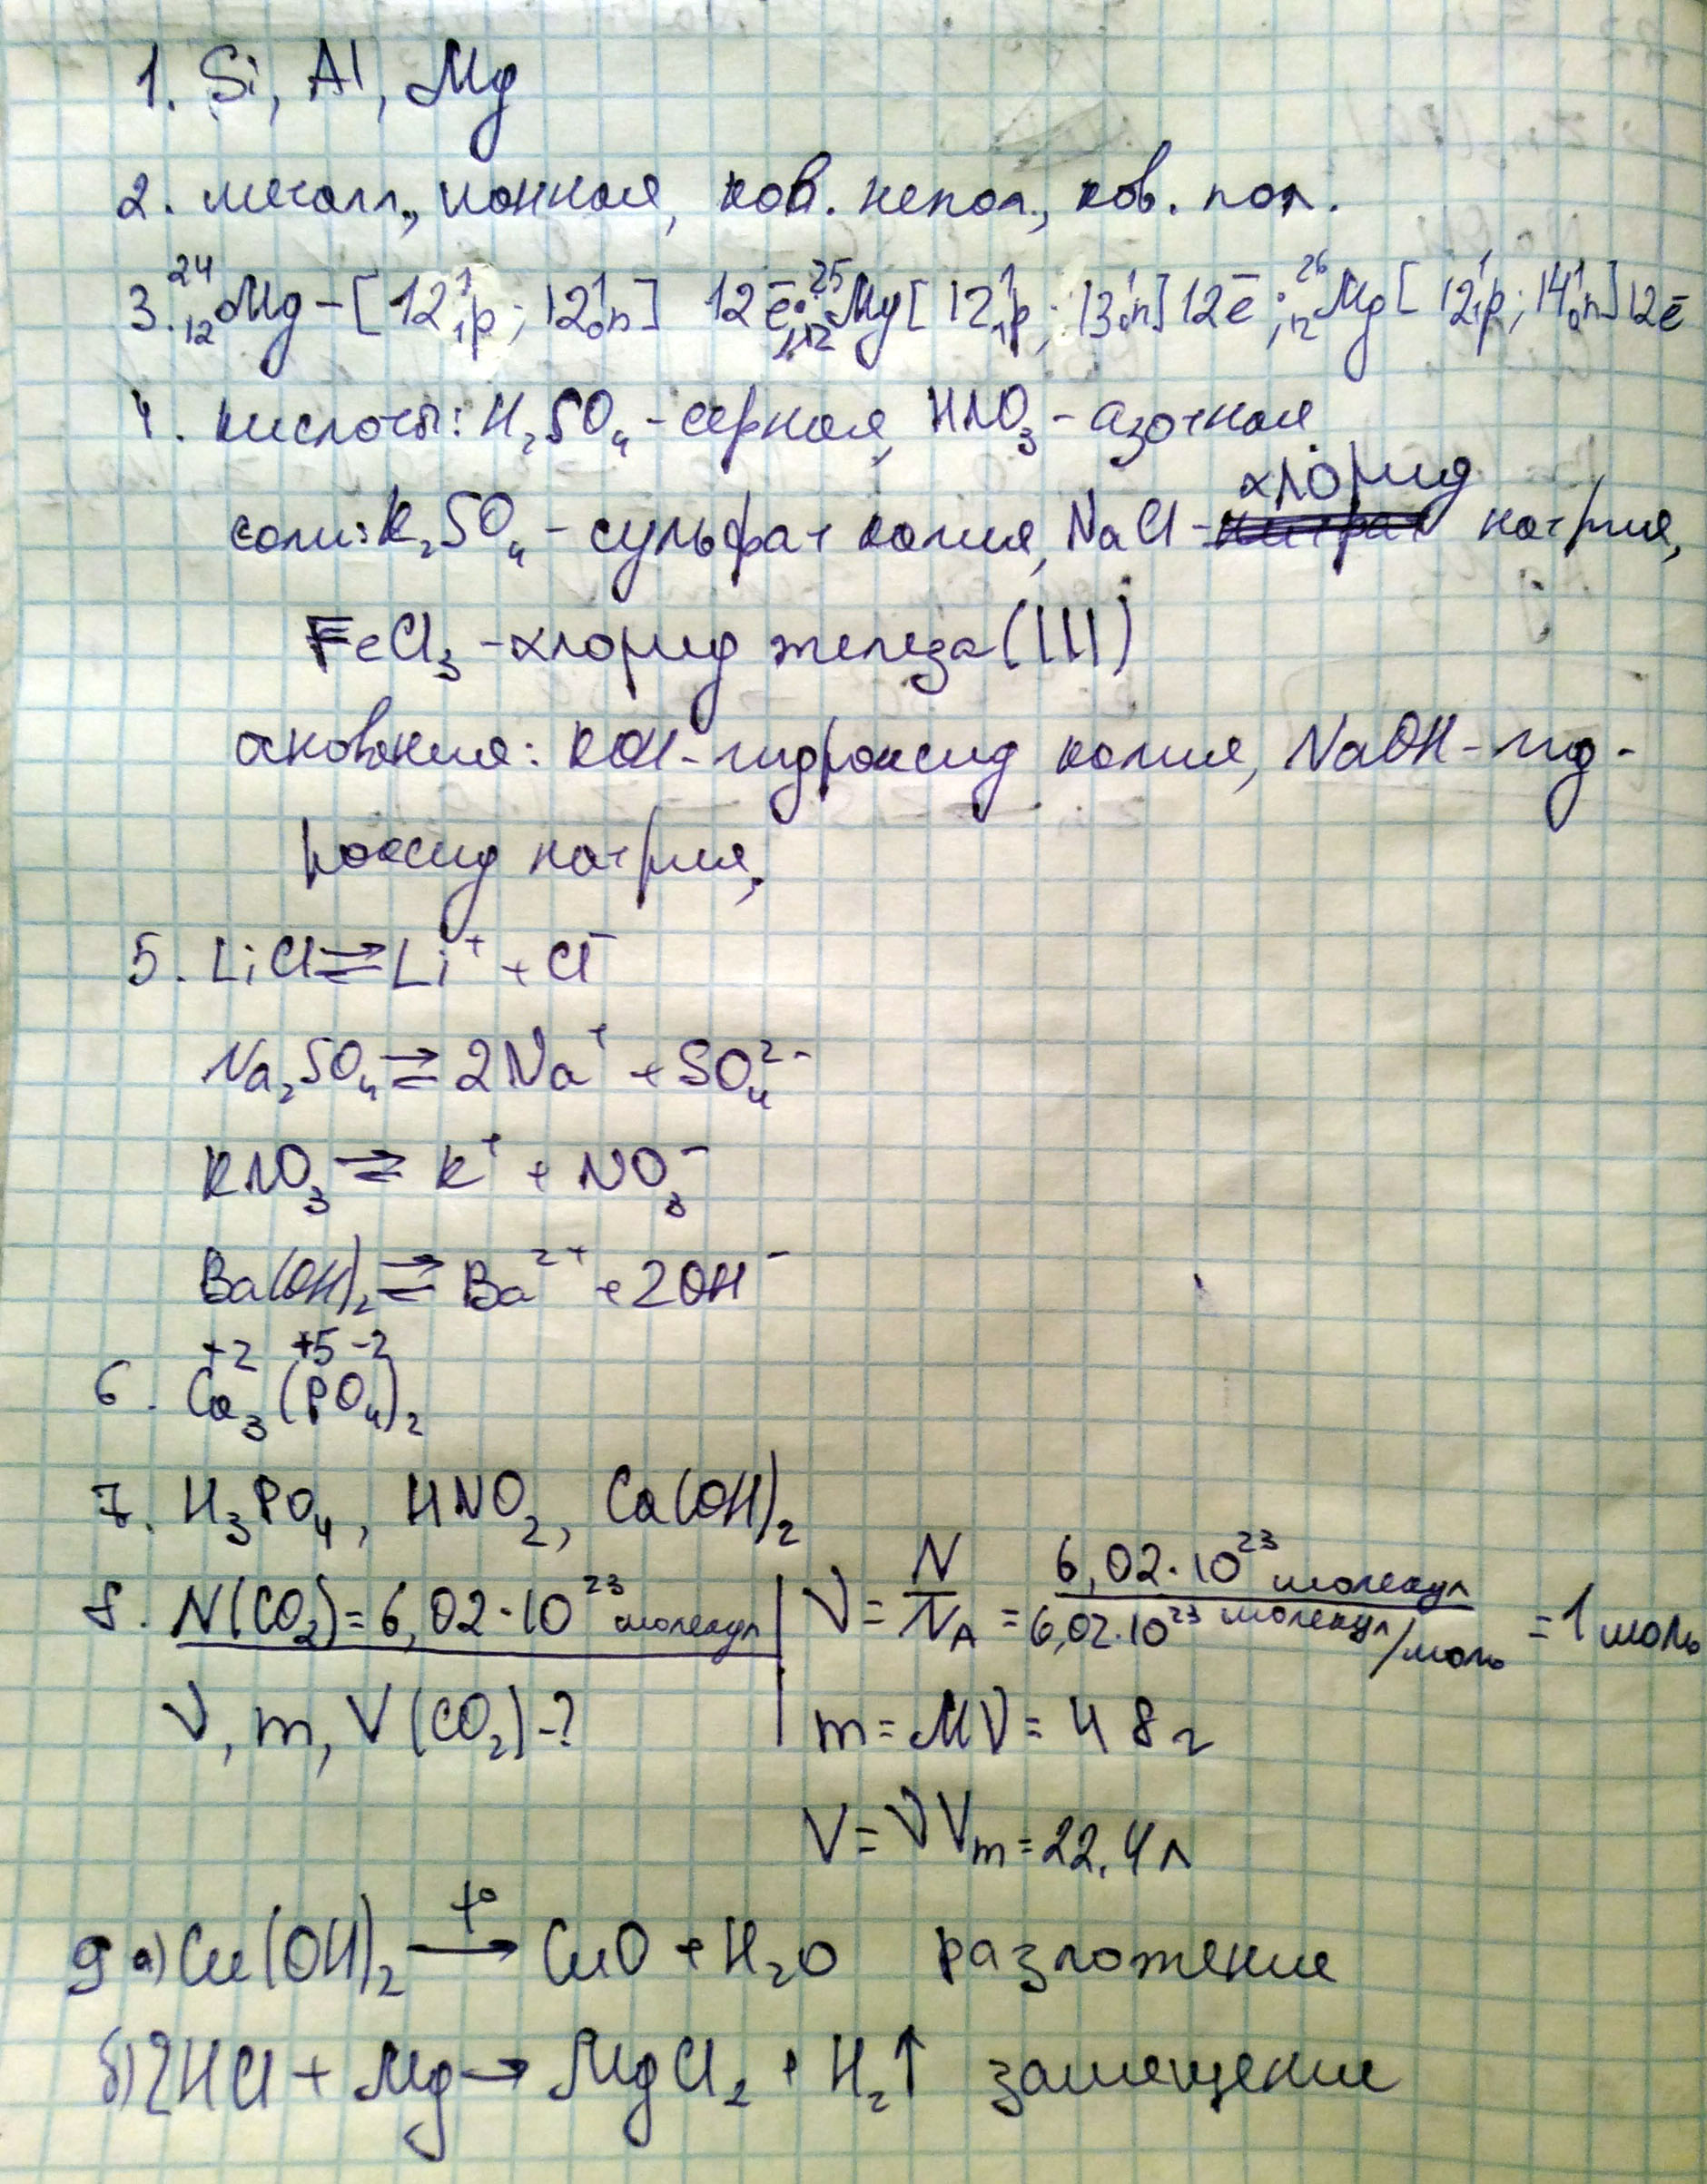 1. Si, Al, Mg
2. металл., ионная, ков. непол., ков. пол.
3. ²⁴₁₂Mg – [12¹₁p; 12¹₀n] 12ē; ²⁵₁₂Mg [12¹₁p; 13¹₀n] 12ē; ²⁶₁₂Mg [12¹₁p; 14¹₀n] 12ē
4. кислоты: H₂SO₄ - серная, HNO₃ - азотная
хлорид
соли: K₂SO₄ - сульфат калия, NaCl - нитрат натрия,
FeCl₃ - хлорид железа (III)
основания: KOH - гидроксид калия, NaOH - гид-
роксид натрия,
5. LiCl ⇄ Li⁺ + Cl⁻
Na₂SO₄ ⇄ 2Na⁺ + SO₄²⁻
KNO₃ ⇄ K⁺ + NO₃⁻
Ba(OH)₂ ⇄ Ba²⁺ + 2OH⁻
+2 +5 -2
6. Ca₃(PO₄)₂
7. H₃PO₄, HNO₂, Ca(OH)₂
8. N(CO₂) = 6,02·10²³ молекул | ν = N/N_A = 6,02·10²³ молекул / 6,02·10²³ молекул/моль = 1 моль
ν, m, V(CO₂) - ? | m = Mν = 48 г
V = νVₘ = 22,4 л
9 а) Cu(OH)₂ →(t°) CuO + H₂O разложение
б) 2HCl + Mg → MgCl₂ + H₂↑ замещение